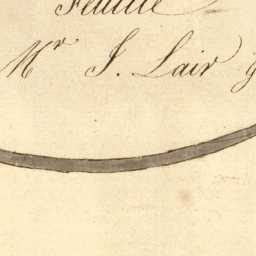 Feuille
Mr J. Lair